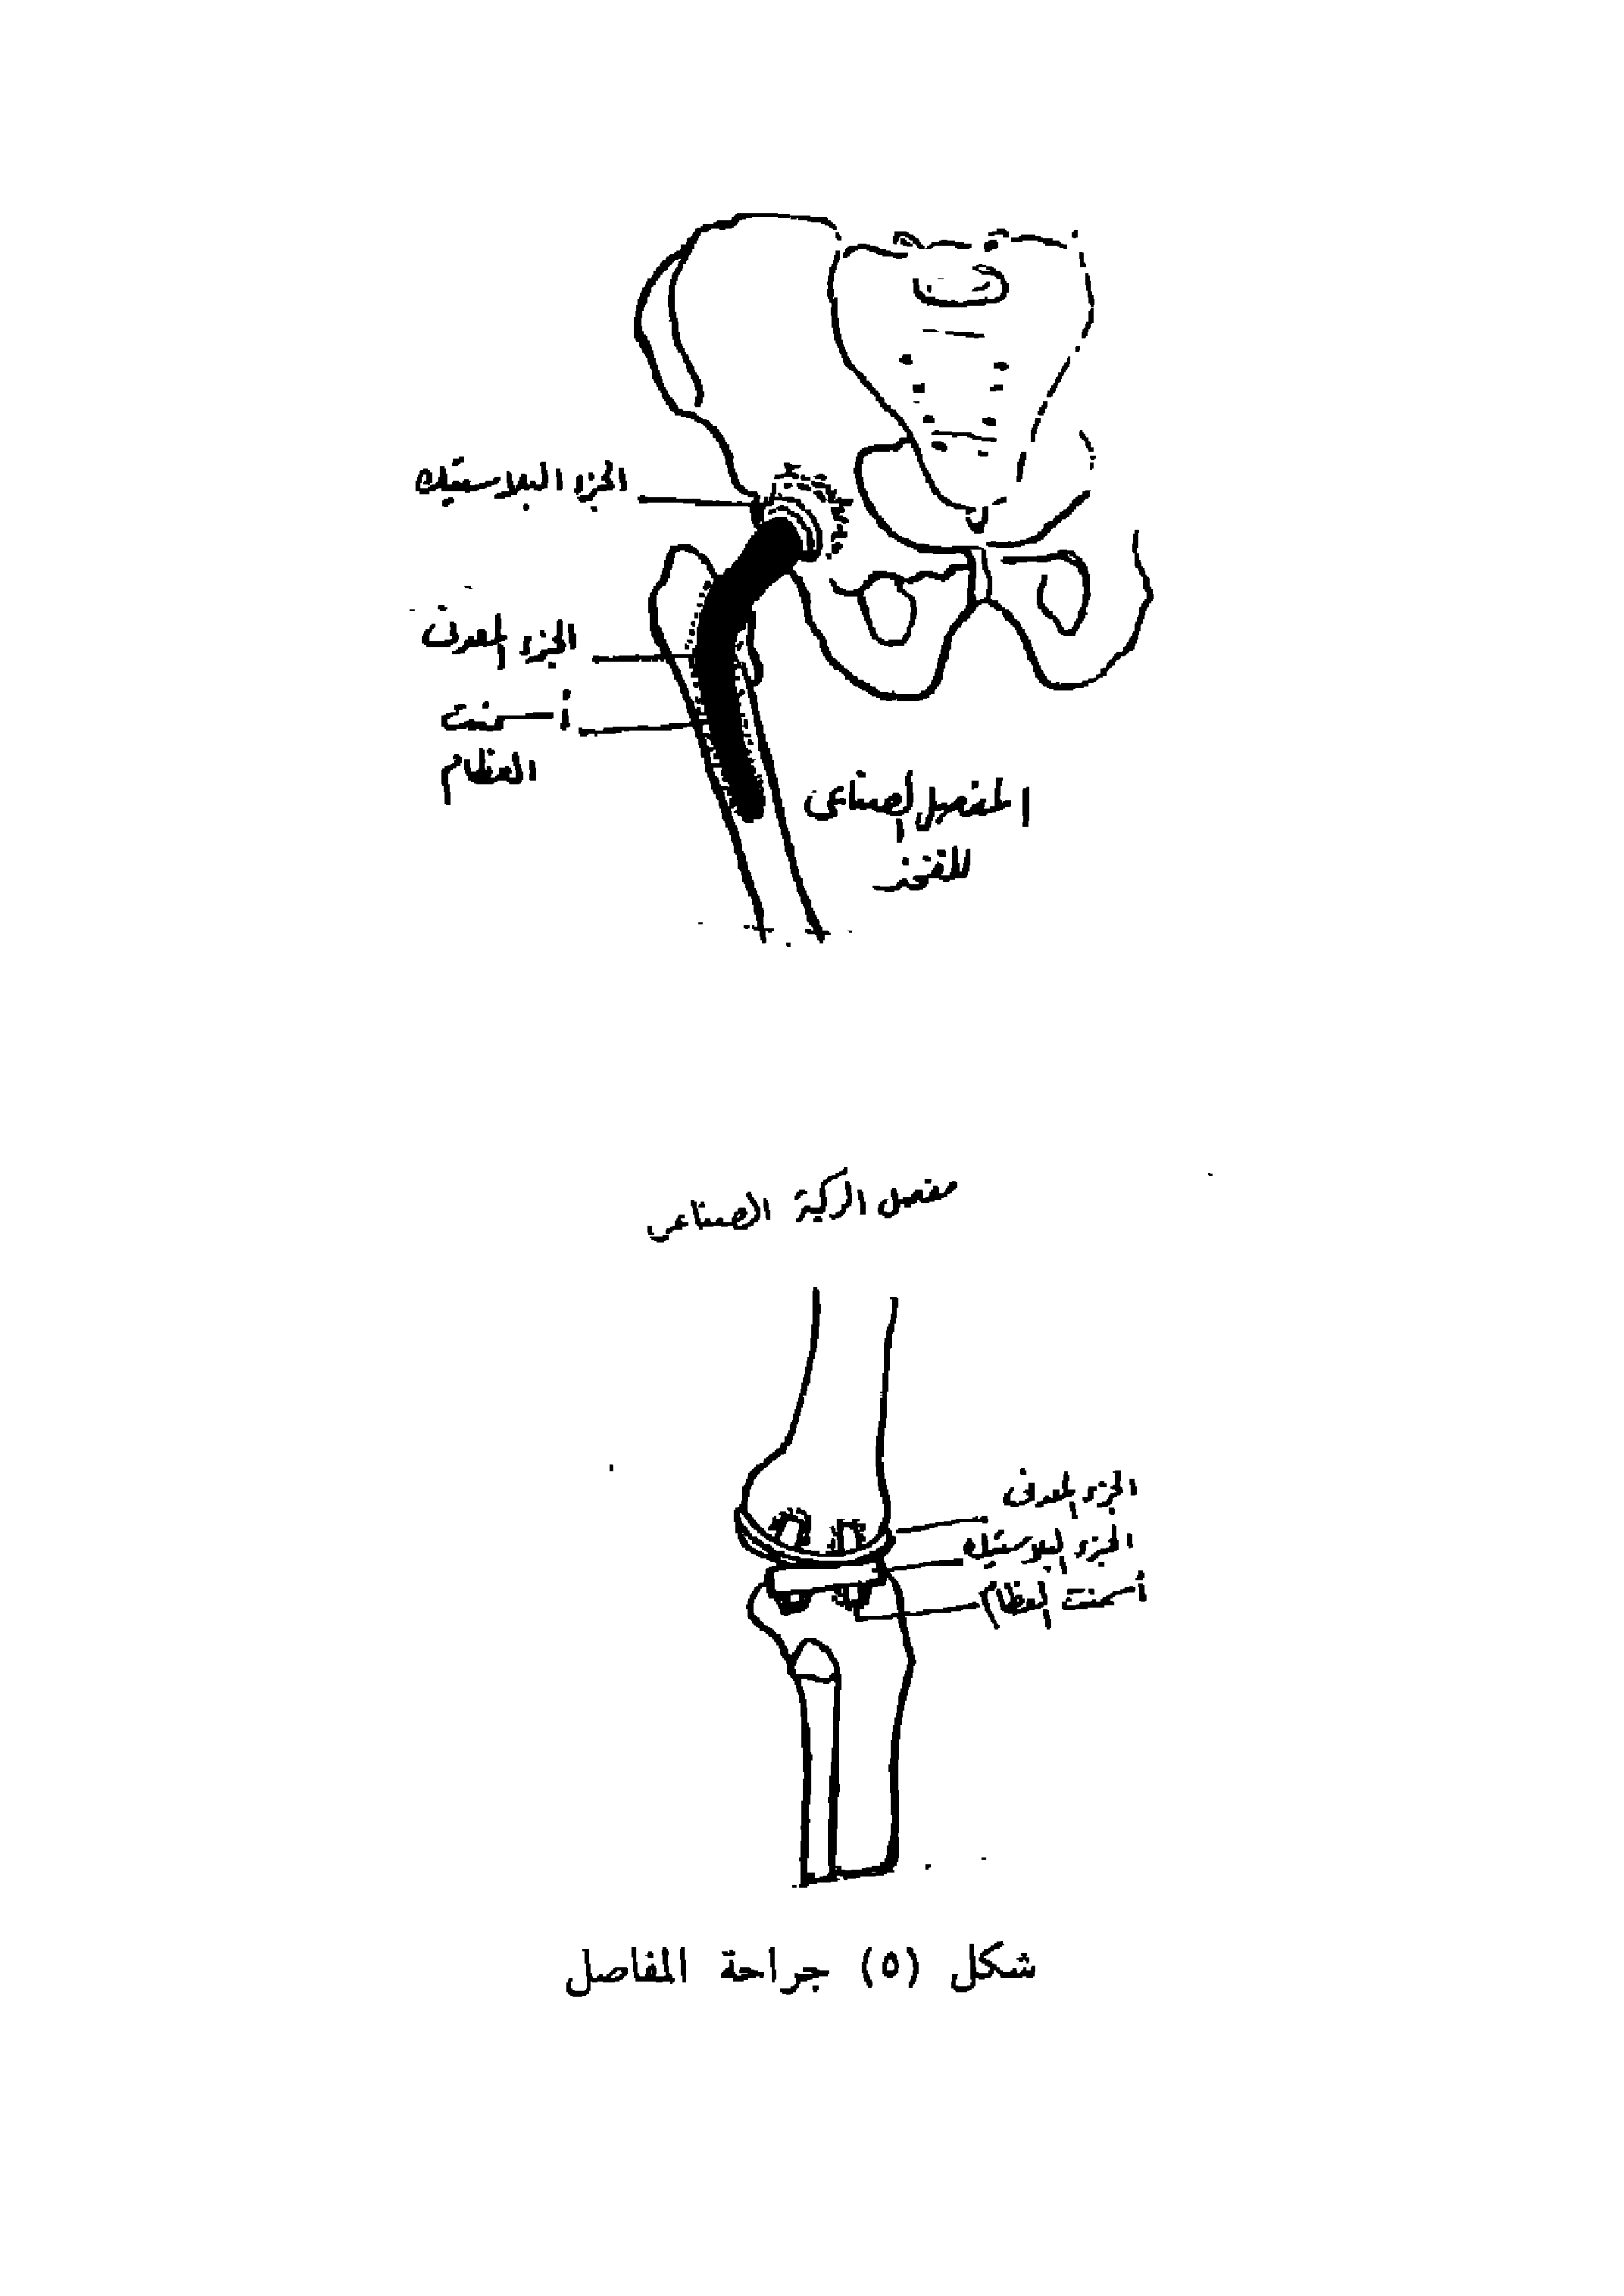 الجزء البلاستيك
الجزء المعدنى
أسمنت
العظام
المفصل الصناعى
للفخذ
مفصل الركبة الصناعى
الجزء المعدنى
الجزء البلاستيك
أسمنت العظام
شكل (٥) جراحة المفاصل